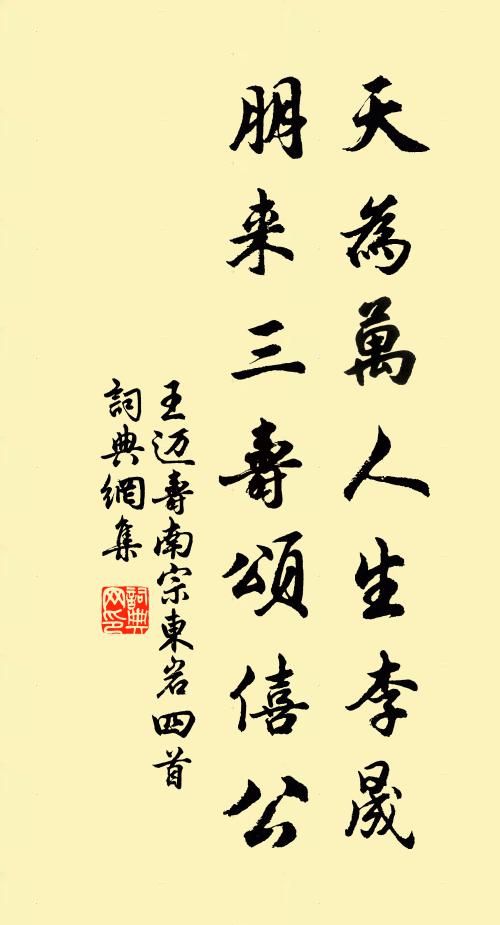 天為萬人生李晟
朋来三壽頌僖公
王迈壽南宗東岩四首
詞典網集
詞典网印